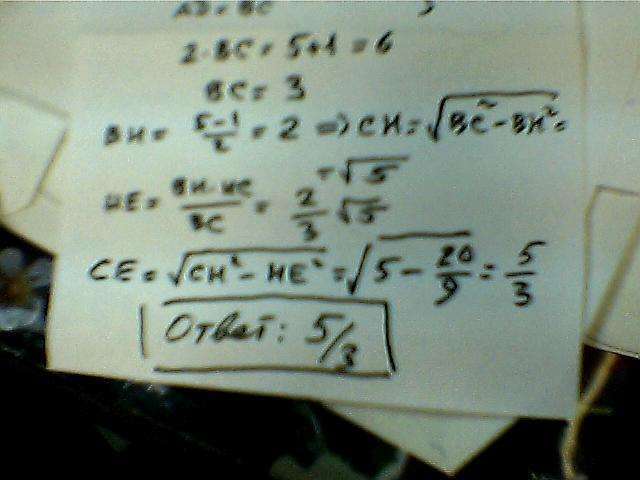 AD = BC
2·BC = 5+1 = 6
BC = 3
BH = 5-1/2 = 2 => CH = √BC²-BH² =
= √5
HE = BH·HC/BC = 2/3 √5
CE = √CH²-HE² = √5-20/9 = 5/3
Ответ: 5/3